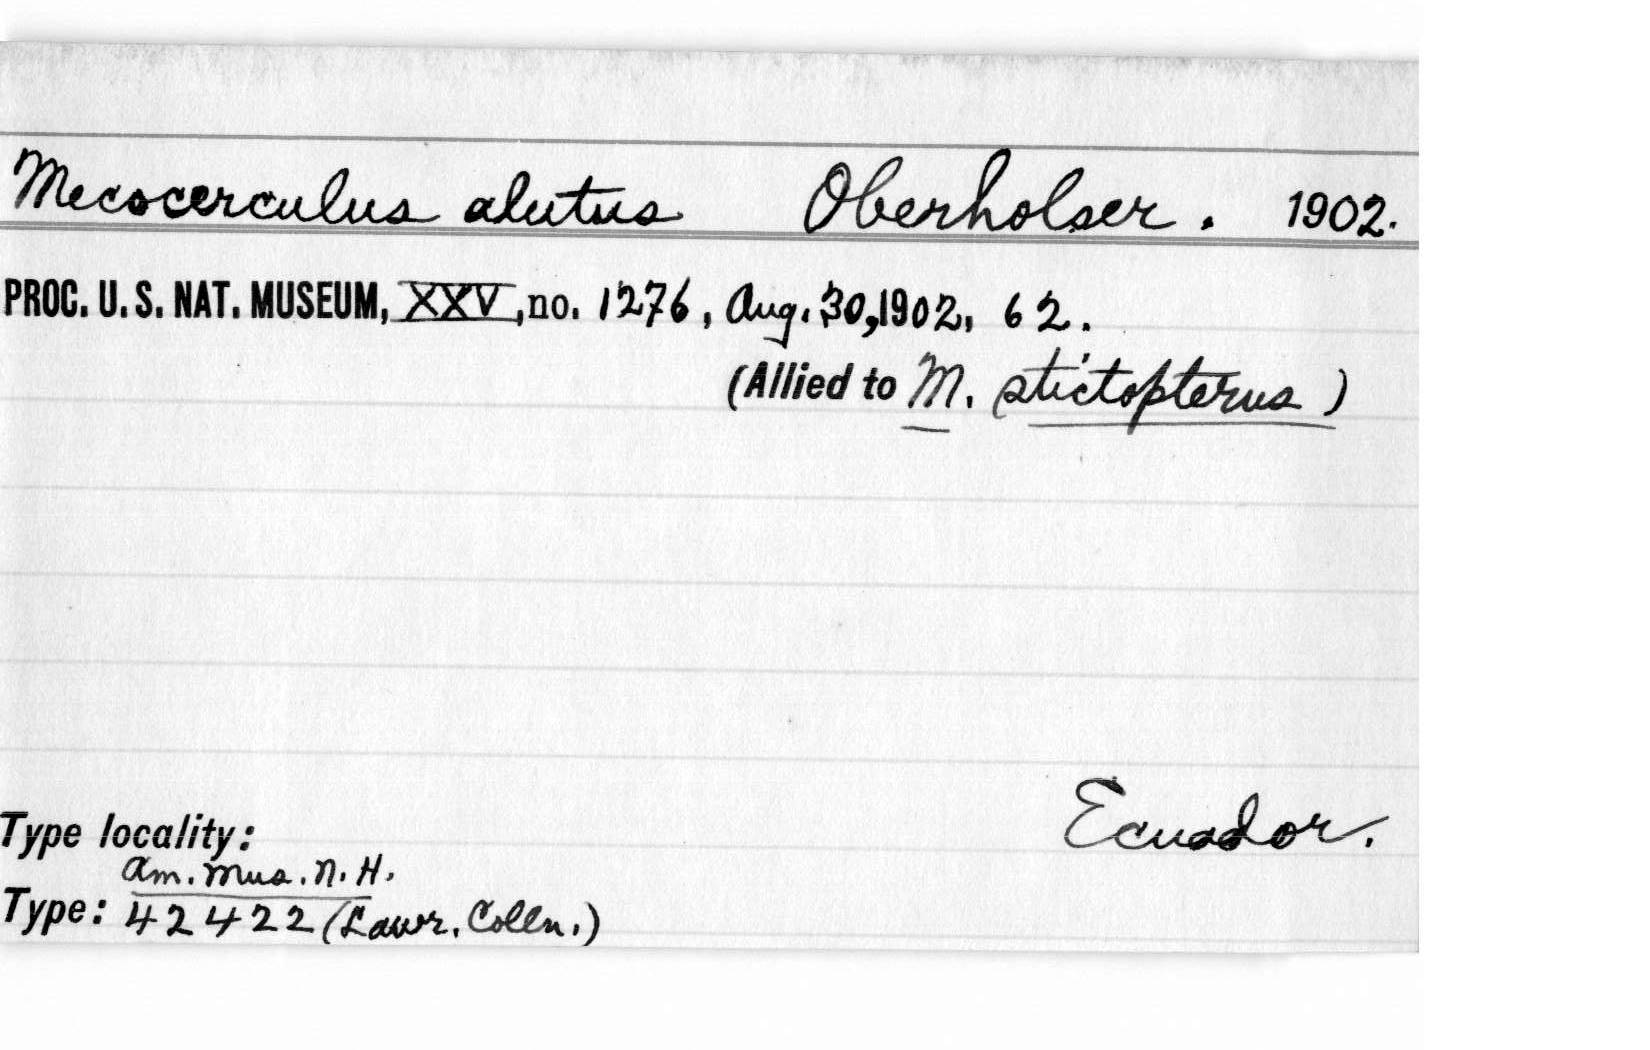 Mecocerculus alutus Oberholser. 1902.
PROC. U. S. NAT. MUSEUM, XXV, no. 1276, Aug. 30, 1902, 62.
(Allied to M. stictopterus)
Ecuador.
Type locality:
Am. Mus. N. H.
Type: 42422 (Lawr. Colln.)